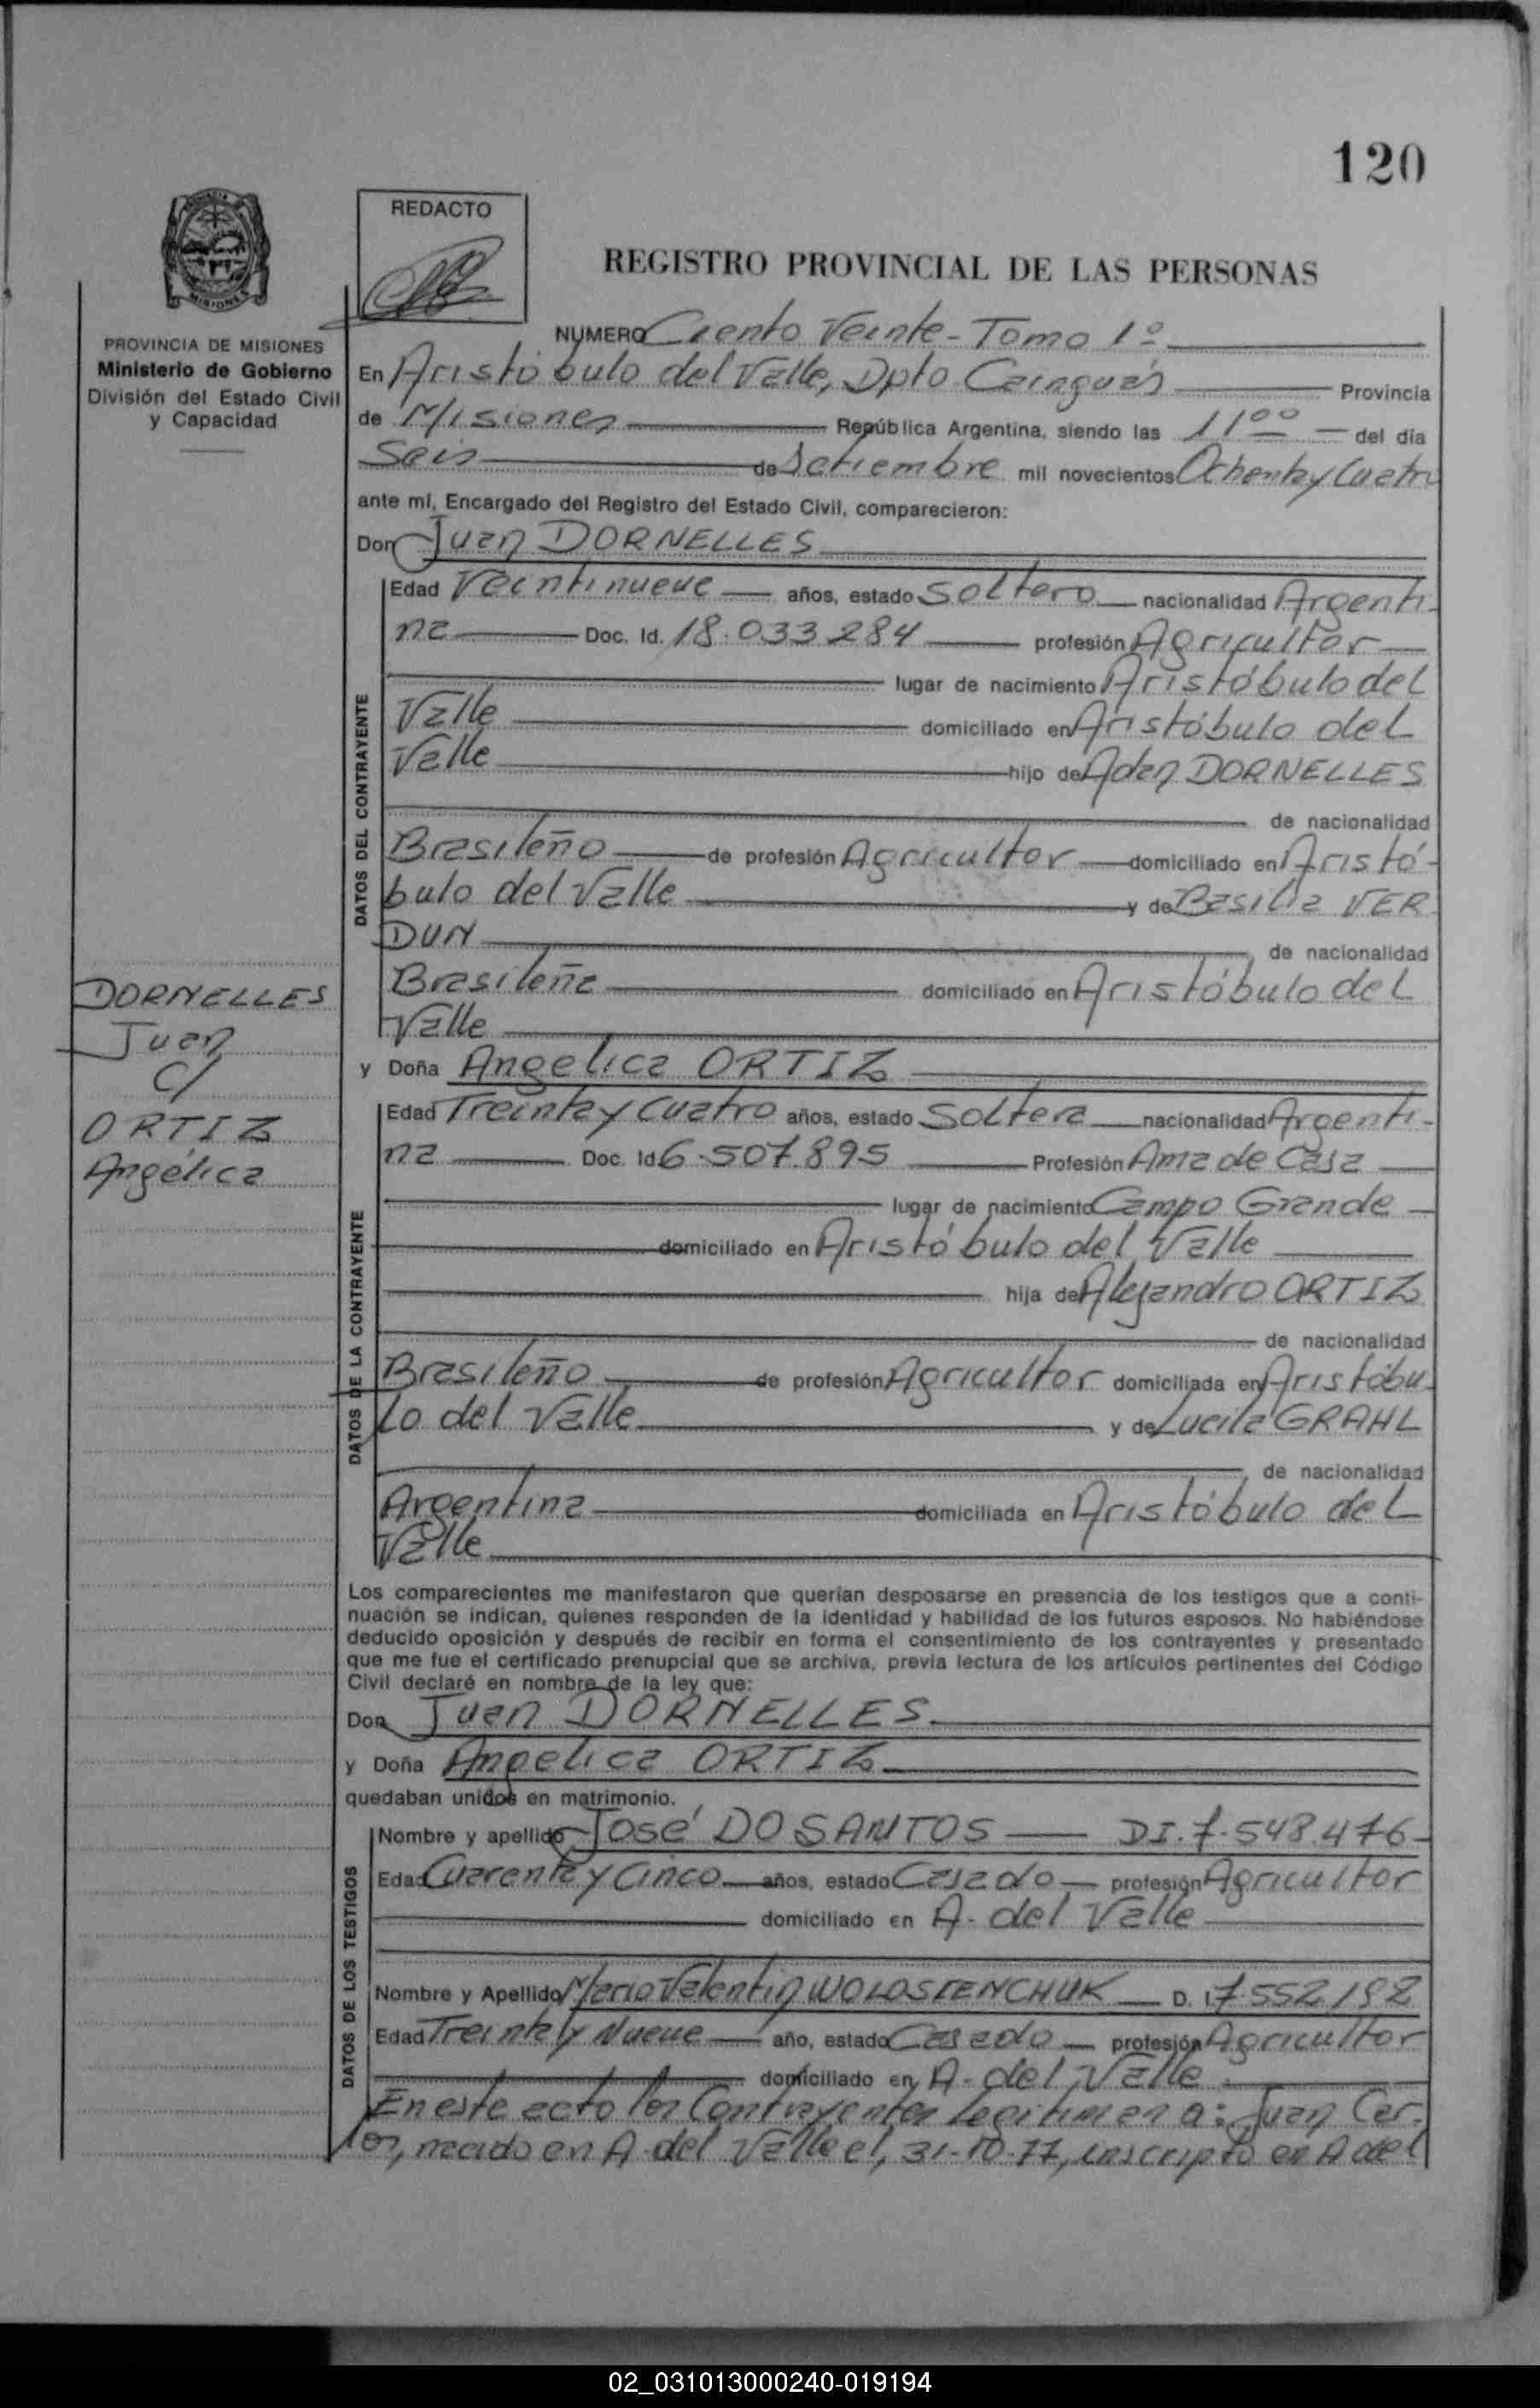 120
REDACTO
REGISTRO PROVINCIAL DE LAS PERSONAS
MISIONES
PROVINCIA DE MISIONES
Ministerio de Gobierno
División del Estado Civil
y Capacidad
NUMERO Ciento Veinte - Tomo 1º
En Aristóbulo del Valle, Dpto Cainguás Provincia
de Misiones República Argentina, siendo las 11 00 del día
Seis de Setiembre mil novecientos Ochenta y Cuatro
ante mí, Encargado del Registro del Estado Civil, comparecieron:
Don Juan DORNELLES
DATOS DEL CONTRAYENTE
Edad Veintinueve años, estado Soltero nacionalidad Argenti-
na Doc. Id. 18.033.284 profesión Agricultor
lugar de nacimiento Aristóbulo del
Valle domiciliado en Aristóbulo del
Valle hijo de Adan DORNELLES
de nacionalidad
Brasileño de profesión Agricultor domiciliado en Aristó-
bulo del Valle y de Basilia VER
DUN de nacionalidad
Brasileña domiciliado en Aristóbulo del
Valle
DORNELLES
Juan
c/
ORTIZ
Angélica
y Doña Angelica ORTIZ
DATOS DE LA CONTRAYENTE
Edad Treinta y Cuatro años, estado Soltera nacionalidad Argenti-
na Doc. Id 6.507.895 Profesión Ama de Casa
lugar de nacimiento Campo Grande
domiciliado en Aristóbulo del Valle
hija de Alejandro ORTIZ
de nacionalidad
Brasileño de profesión Agricultor domiciliada en Aristóbu
lo del Valle y de Lucila GRAHL
de nacionalidad
Argentina domiciliada en Aristóbulo del
Valle
Los comparecientes me manifestaron que querían desposarse en presencia de los testigos que a conti-
nuación se indican, quienes responden de la identidad y habilidad de los futuros esposos. No habiéndose
deducido oposición y después de recibir en forma el consentimiento de los contrayentes y presentado
que me fue el certificado prenupcial que se archiva, previa lectura de los artículos pertinentes del Código
Civil declaré en nombre de la ley que:
Don Juan DORNELLES
y Doña Angelica ORTIZ
quedaban unidos en matrimonio.
DATOS DE LOS TESTIGOS
Nombre y apellido José DO SANTOS DI. 7.548.476
Edad Cuarenta y Cinco años, estado Casado profesión Agricultor
domiciliado en A. del Valle
Nombre y Apellido Mario Valentin WOLOSZENCHUK D. I 7.552.192
Edad Treinta y Nueve año, estado Casado profesión Agricultor
domiciliado en A. del Valle
En este acto los Contrayentes legitiman a: Juan Car-
los, nacido en A. del Valle el, 31-10-77, inscripto en A del
02_031013000240-019194